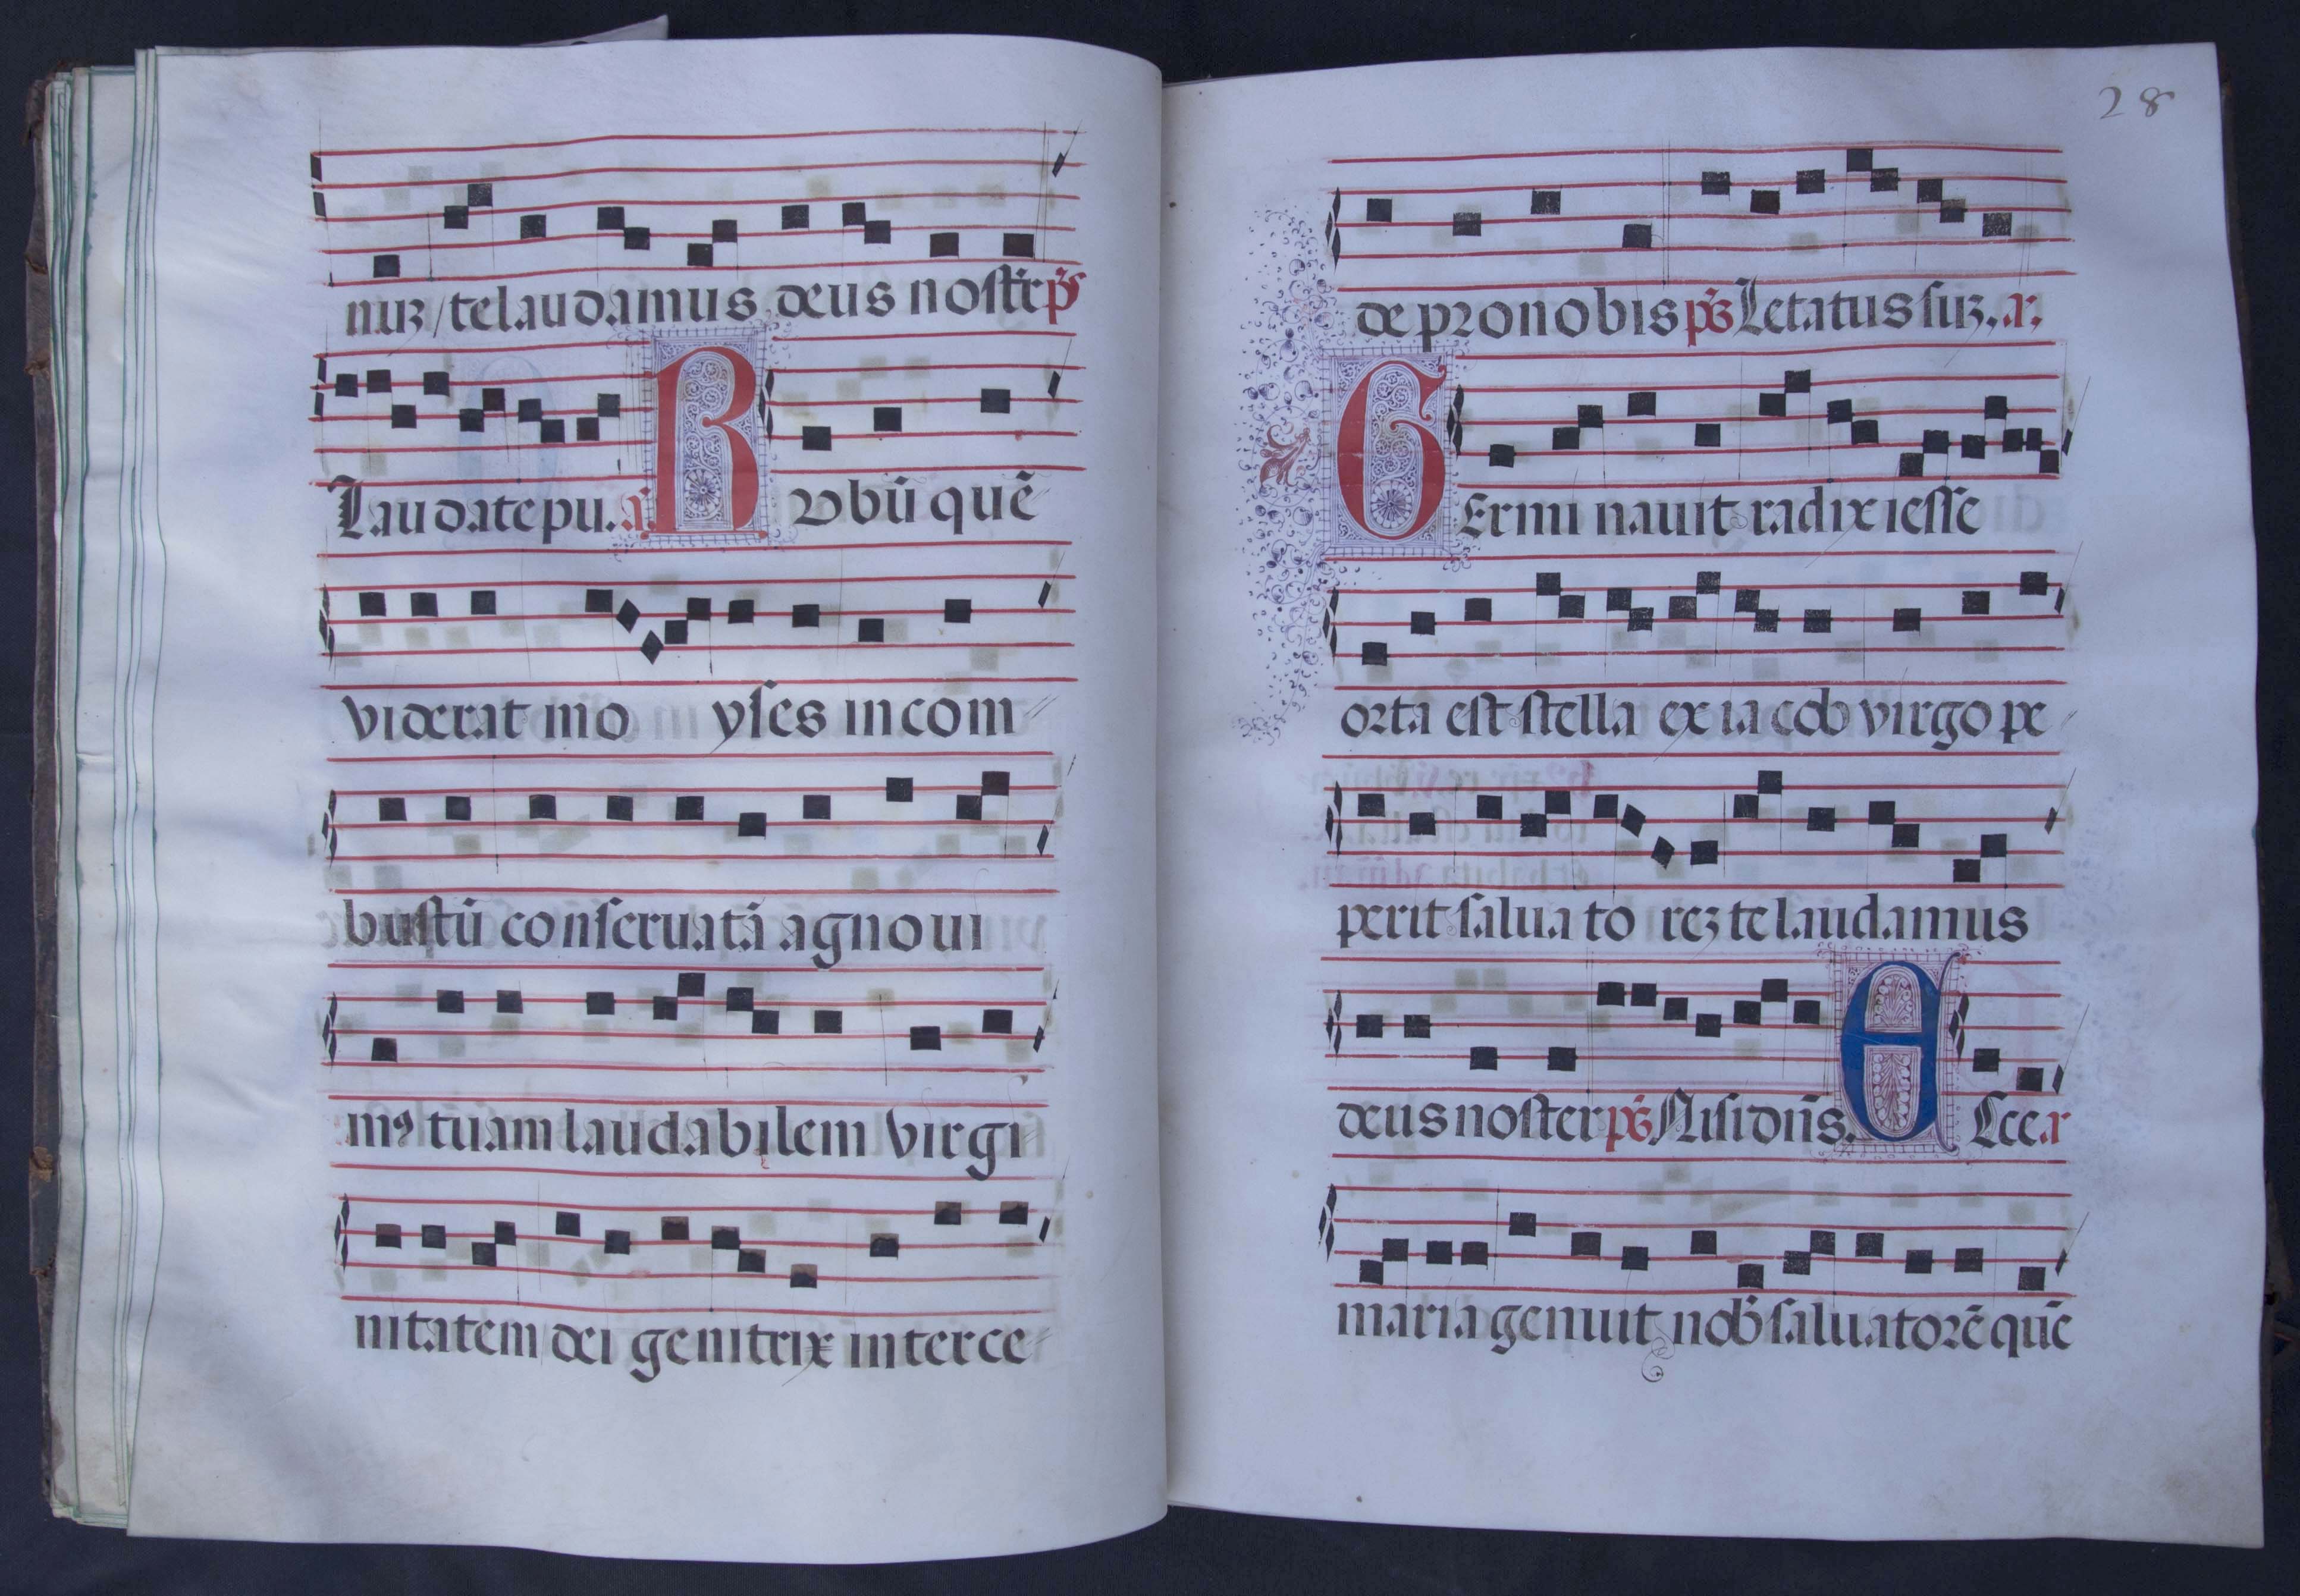 nuz / te laudamus deus nostr̄ ps̄
Laudate pu. a. R vbū quē
viderat mo yses incom
bustū conseruatā agnoui
mꝰ tuam laudabilem virgi
nitatem dei genitrix interce
28
de pro nobis ps̄ Letatus suz. a.
GErmi nauit radix iesse
orta est stella ex iacob virgo pe
perit saluato rez te laudamus
deus noster ps̄ Nisi dn̄s. E Cce. a
maria genuit nob̄ saluatorē quē